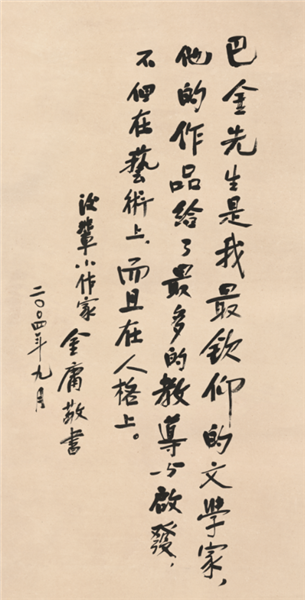 巴金先生是我最欽仰的文學家，
他的作品給了最多的教導与啟發，
不但在藝術上，而且在人格上。
後輩小作家 金庸敬書
二〇〇四年九月